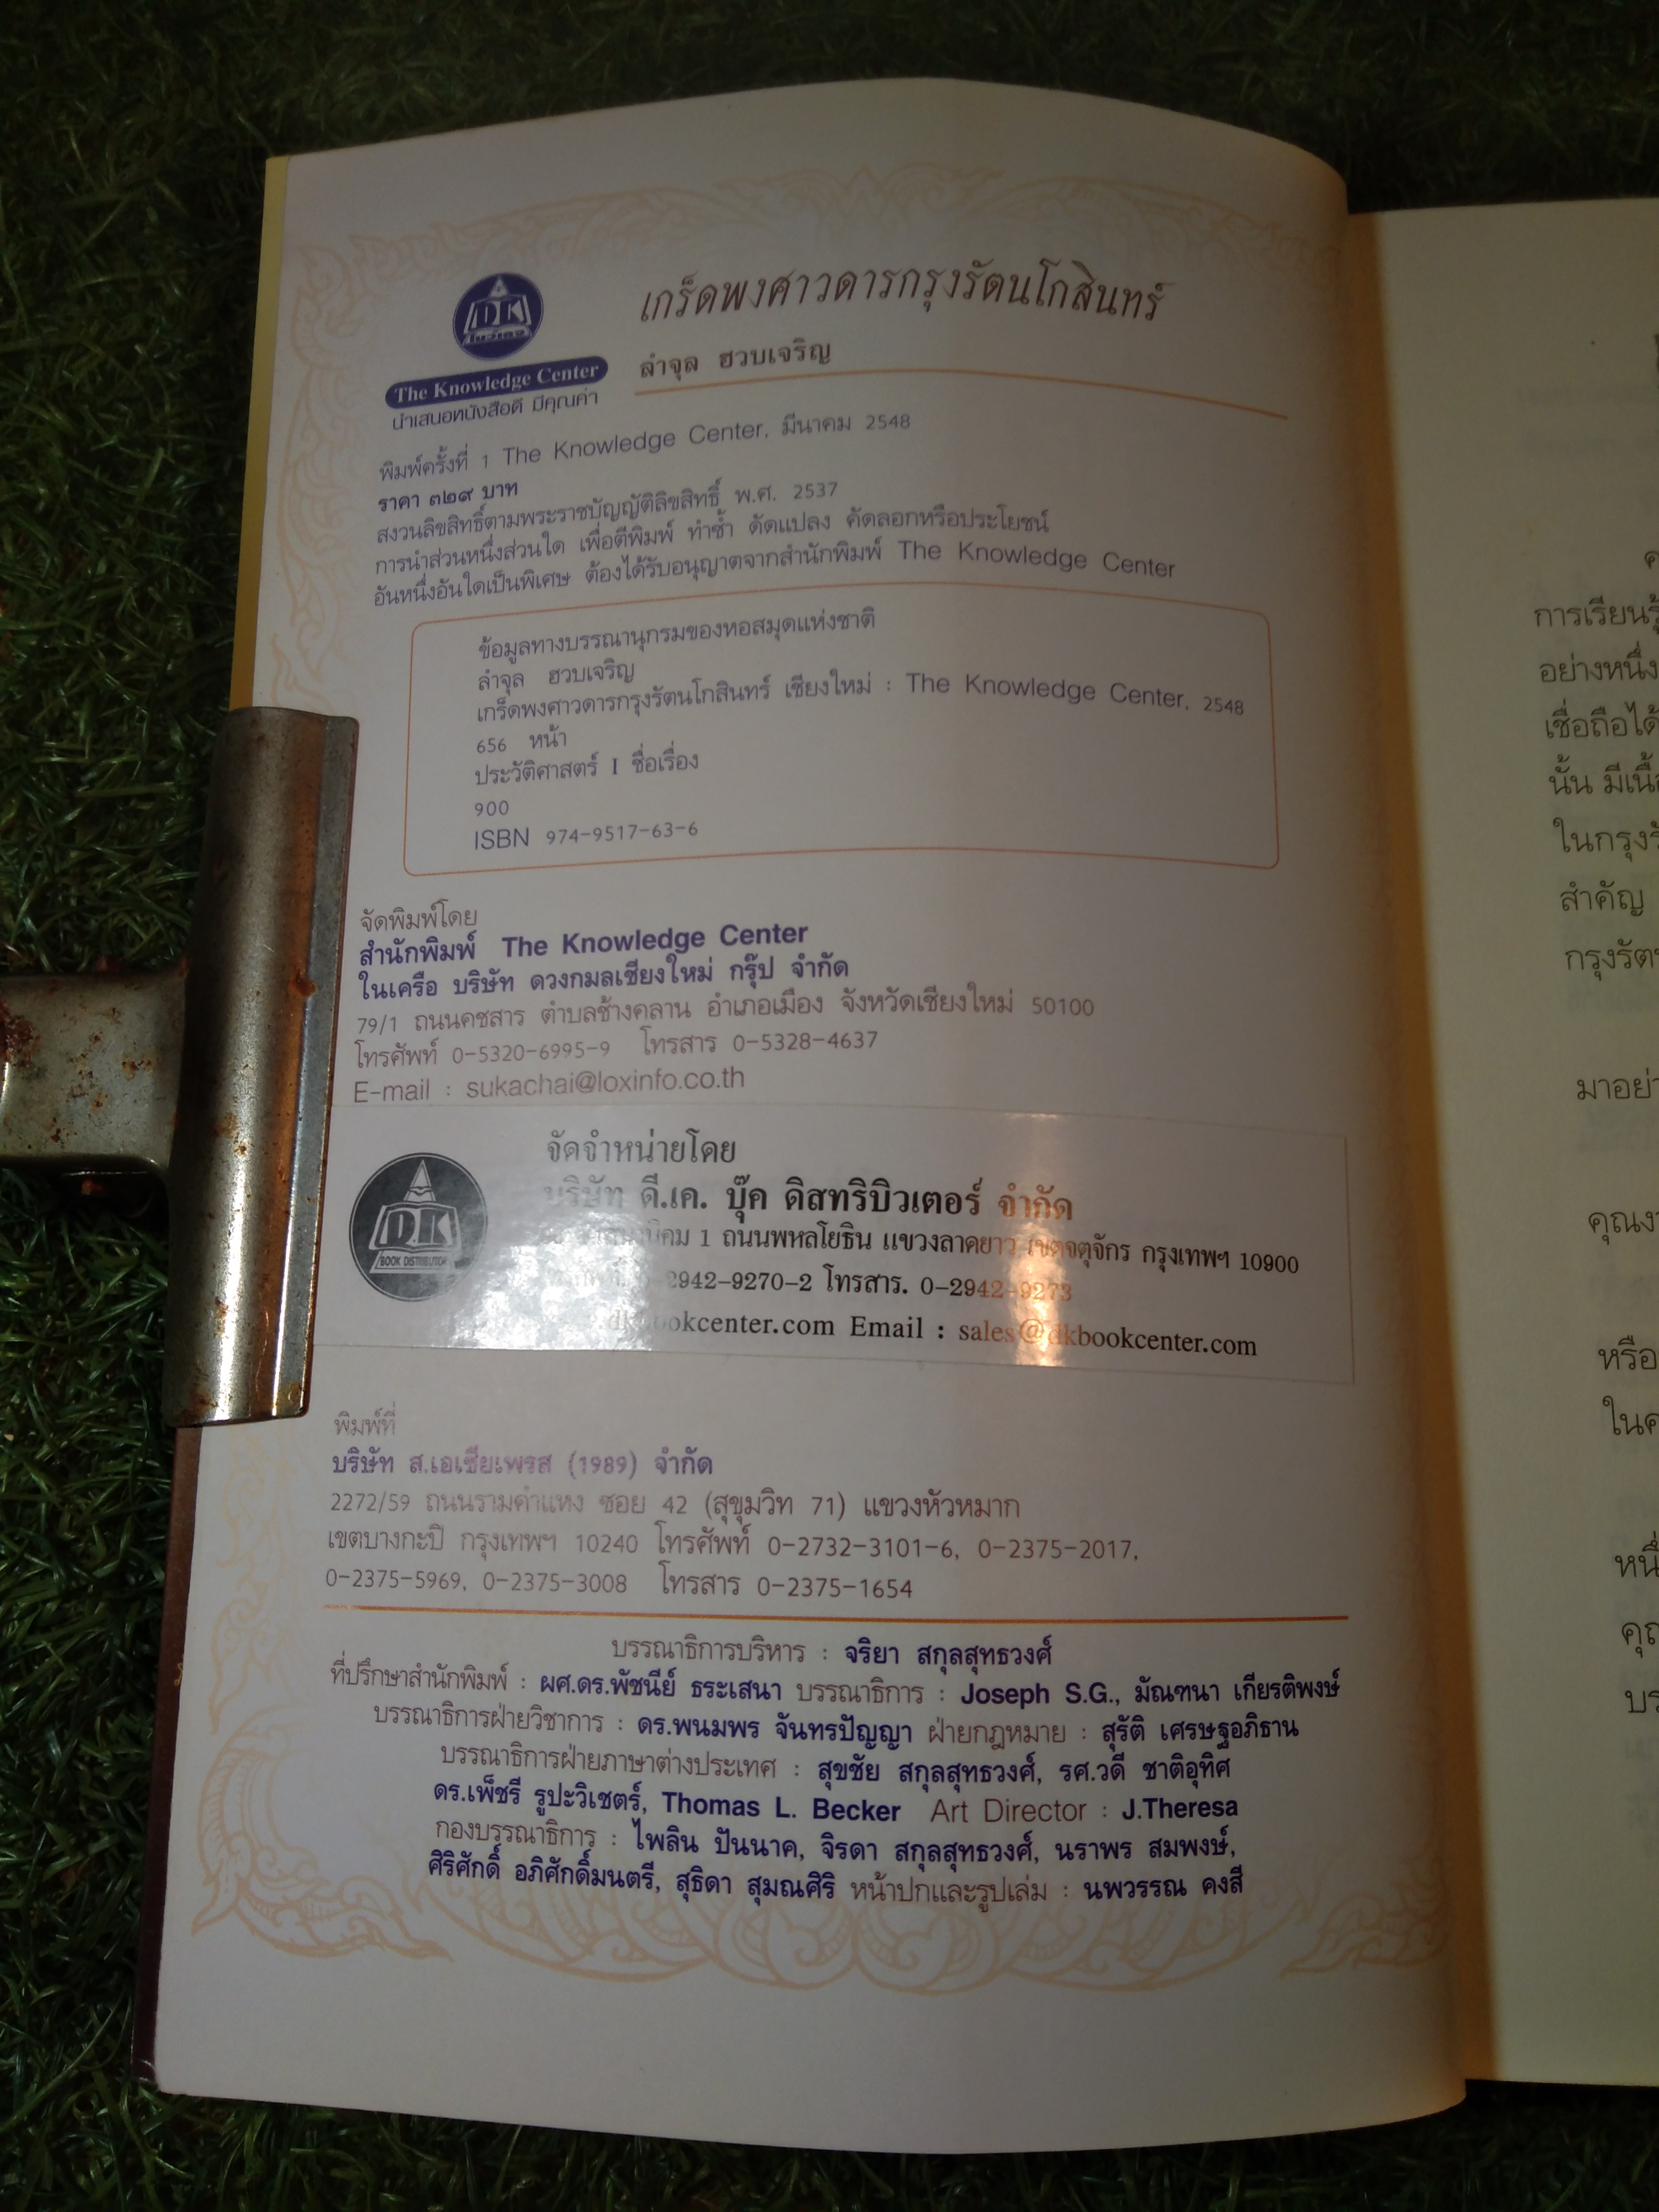 DK
The Knowledge Center
นำเสนอหนังสือดี มีคุณค่า
เกร็ดพงศาวดารกรุงรัตนโกสินทร์
ลำจุล ฮวบเจริญ
พิมพ์ครั้งที่ 1 The Knowledge Center, มีนาคม 2548
ราคา ๓๒๙ บาท
สงวนลิขสิทธิ์ตามพระราชบัญญัติลิขสิทธิ์ พ.ศ. 2537
การนำส่วนหนึ่งส่วนใด เพื่อตีพิมพ์ ทำซ้ำ ดัดแปลง คัดลอกหรือประโยชน์
อันหนึ่งอันใดเป็นพิเศษ ต้องได้รับอนุญาตจากสำนักพิมพ์ The Knowledge Center
ข้อมูลทางบรรณานุกรมของหอสมุดแห่งชาติ
ลำจุล ฮวบเจริญ
เกร็ดพงศาวดารกรุงรัตนโกสินทร์ เชียงใหม่ : The Knowledge Center, 2548
656 หน้า
ประวัติศาสตร์ I ชื่อเรื่อง
900
ISBN 974-9517-63-6
จัดพิมพ์โดย
สำนักพิมพ์ The Knowledge Center
ในเครือ บริษัท ดวงกมลเชียงใหม่ กรุ๊ป จำกัด
79/1 ถนนคชสาร ตำบลช้างคลาน อำเภอเมือง จังหวัดเชียงใหม่ 50100
โทรศัพท์ 0-5320-6995-9 โทรสาร 0-5328-4637
E-mail : sukachai@loxinfo.co.th
DK
BOOK DISTRIBUTOR
จัดจำหน่ายโดย
บริษัท ดี.เค. บุ๊ค ดิสทริบิวเตอร์ จำกัด
1 ถนนพหลโยธิน แขวงลาดยาว เขตจตุจักร กรุงเทพฯ 10900
0-2942-9270-2 โทรสาร. 0-2942-9273
dkbookcenter.com Email : sales@dkbookcenter.com
พิมพ์ที่
บริษัท ส.เอเซียเพรส (1989) จำกัด
2272/59 ถนนรามคำแหง ซอย 42 (สุขุมวิท 71) แขวงหัวหมาก
เขตบางกะปิ กรุงเทพฯ 10240 โทรศัพท์ 0-2732-3101-6, 0-2375-2017,
0-2375-5969, 0-2375-3008 โทรสาร 0-2375-1654
บรรณาธิการบริหาร : จริยา สกุลสุทธวงศ์
ที่ปรึกษาสำนักพิมพ์ : ผศ.ดร.พัชนีย์ ธระเสนา บรรณาธิการ : Joseph S.G., มัณฑนา เกียรติพงษ์
บรรณาธิการฝ่ายวิชาการ : ดร.พนมพร จันทรปัญญา ฝ่ายกฎหมาย : สุรัติ เศรษฐอภิธาน
บรรณาธิการฝ่ายภาษาต่างประเทศ : สุขชัย สกุลสุทธวงศ์, รศ.วดี ชาติอุทิศ
ดร.เพ็ชรี รูปะวิเชตร์, Thomas L. Becker Art Director : J.Theresa
กองบรรณาธิการ : ไพลิน ปันนาค, จิรดา สกุลสุทธวงศ์, นราพร สมพงษ์,
ศิริศักดิ์ อภิศักดิ์มนตรี, สุธิดา สุมณศิริ หน้าปกและรูปเล่ม : นพวรรณ คงสี
การเรียนรู้
อย่างหนึ่ง
เชื่อถือได้
นั้น มีเนื้อ
สำคัญ
มาอย่า
หรือ